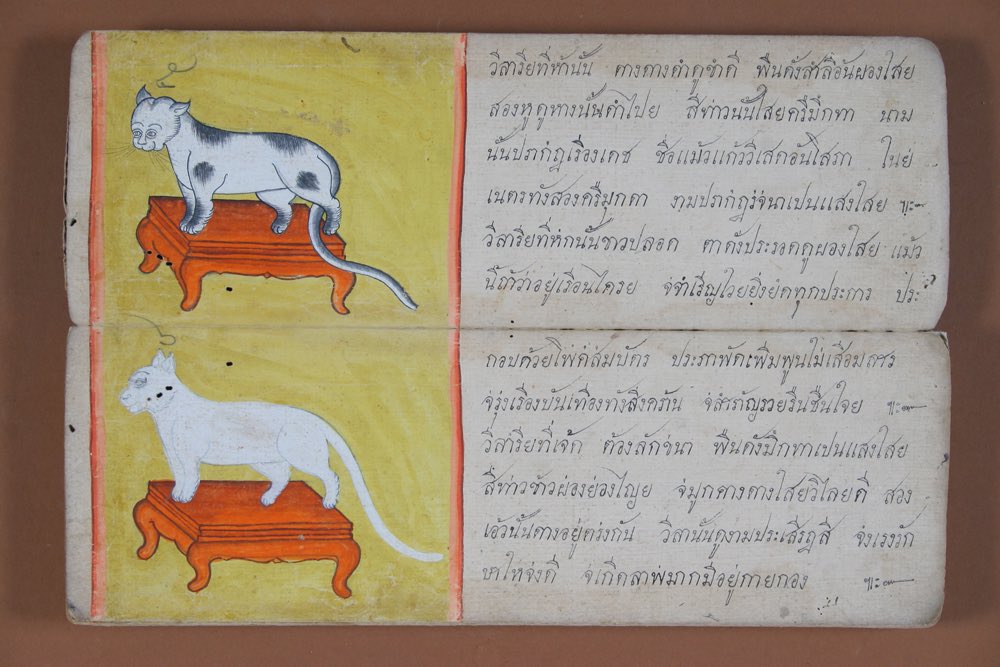 วิลาริยที่ห้านั้น คางด่างดำดูขำดี พื้นดังสำลีอันผ่องใสย
สองหูดูหางนั้นดำไปย สี่ท้าวนั้นใสยครีมึกทา นาม
นั้นปรากฏเรื่องเดช ชื่อแม้วแก้ววิเสดอันโสภา ในย่
เนตรทังสองครีมุกดา งามปรากฏรจ่นาเปนแสงใสย ๚ะ
วิลาริยที่หกนั้นขาวปลอด ตาดังประรอดดูผ่องใสย แม้ว
นี้ถ้าว่าอยู่เรือนใครย จ่จำเริญไวยยิ่งยดทุกประการ ประ
กอบด้วยโพ่คสมบัตร ประภาพัดเพิมพูนไม่เสือม
จ่รุ่งเรืองบันเทืองทัง จ่สำรวยรืนชืนใจย ๚ะ
วิลาริยที่เจ้ด ต้องลักข่นา พื้นดังมึกทาเปนแสงใสย
สี่ท้าวขาวผ่องย่องไญย จ่มูกคางหางใสยวิไลยดี สอง
นั้นด่างอยู่ตรงกัน วิลานั้นดูงามประเสิรฎสี จ่งเรงรัก
ษาไห้จ่งดี จ่เกิดลาพ่มากมีอยู่กายกอง ๚ะ